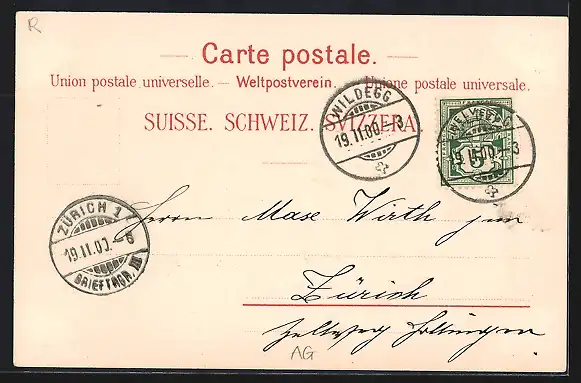 R
Carte postale.
Union postale universelle. — Weltpostverein. — Unione postale universale.
SUISSE. SCHWEIZ. SVIZZERA.
WILDEGG
19.II.00.–3
HELVETIA
19.II.00.–3
5
ZÜRICH 1
19.II.00.–6
BRIEFTRGR. III
Herrn Wirth jun
Zürich
AG